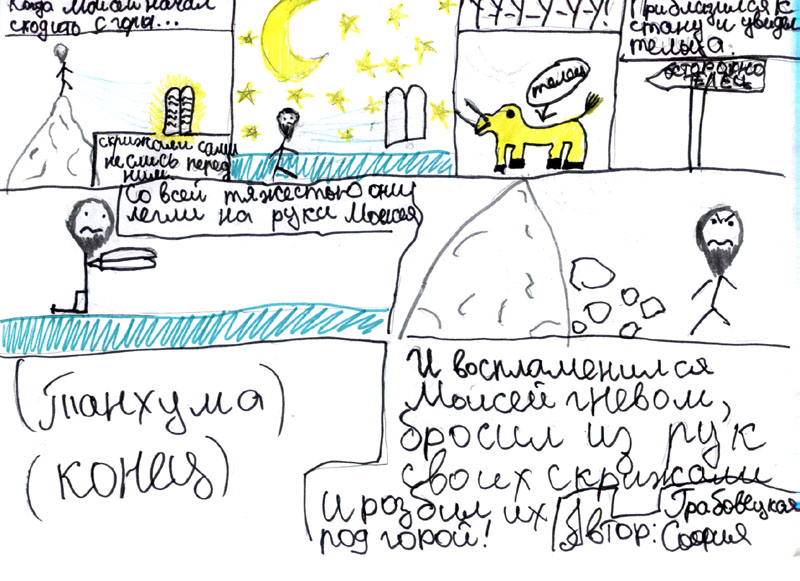 Когда Моисей начал
сходить с горы...
скрижали сами
неслись перед
ним.
У-У-У-У-У-У!
телец
Приблизился к
стану и увидел
тельца.
ОСТОРОЖНО
ТЕЛЕЦ
Со всей тяжестью они
легли на руки Моисея
И воспламенился
Моисей гневом,
бросил из рук
своих скрижали
и розбил их
под горой!
(Танхума)
(конец)
Автор:
Грабовецкая
София